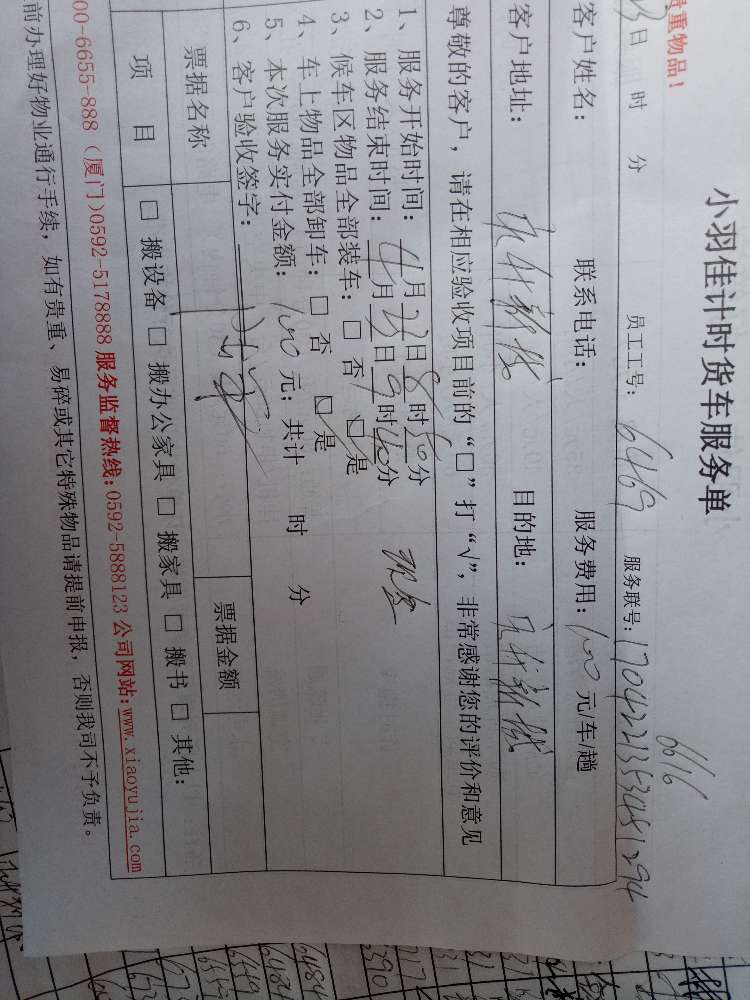 小羽佳计时货车服务单
6616
贵重物品！
23日 时 分 员工工号：6469 服务联号：1704221353451294
客户姓名： 联系电话： 服务费用：100元/车/趟
客户地址： 新城 目的地： 新城
尊敬的客户，请在相应验收项目前的“□”打“√”，非常感谢您的评价和意见
1、服务开始时间：4月23日8时50分
2、服务结束时间：4月23日9时40分 现金
3、候车区物品全部装车：□ 否 □ 是
4、车上物品全部卸车：□ 否 □ 是
5、本次服务实付金额：100元；共计 时 分
6、客户验收签字：
票据名称 票据金额
项 目 □ 搬设备 □ 搬办公家具 □ 搬家具 □ 搬书 □ 其他：
00-6655-888（厦门)0592-5178888 服务监督热线:0592-5888123 公司网站:www.xiaoyujia.com
前办理好物业通行手续，如有贵重、易碎或其它特殊物品请提前申报，否则我司不予负责。